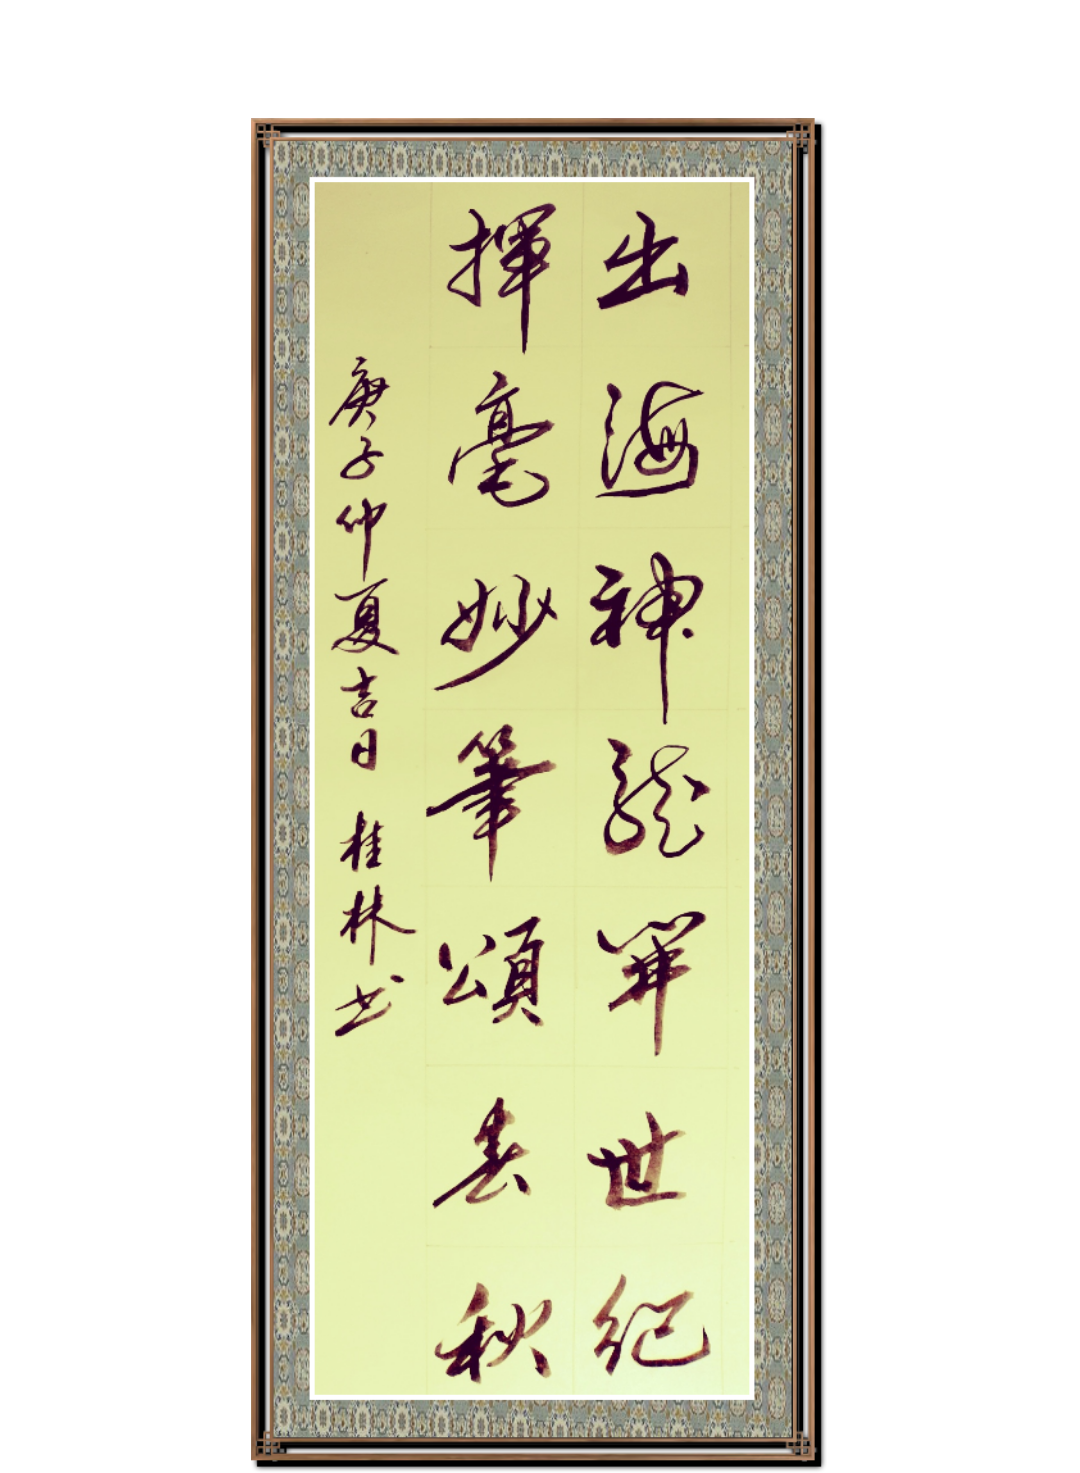 出海神龍開世紀
揮毫妙筆頌春秋
庚子仲夏吉日 桂林书